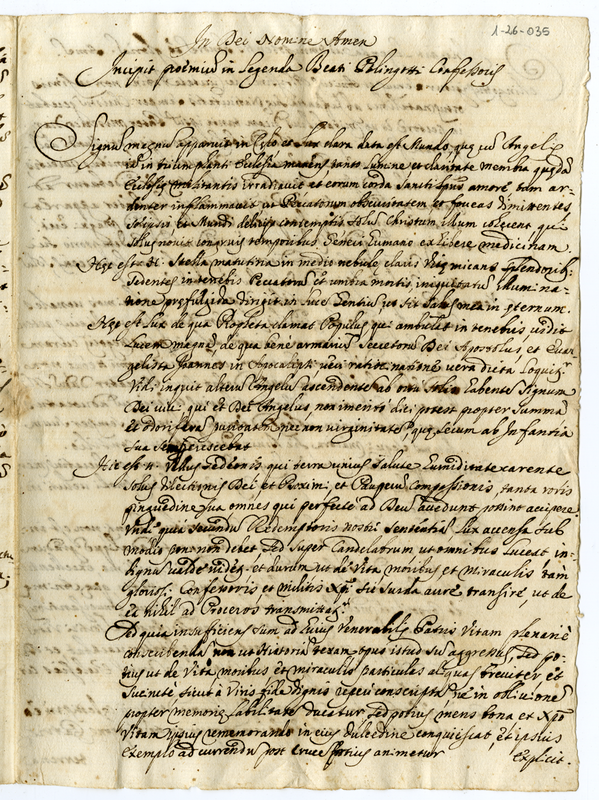 1-26-035
In Dei Nomine Amen
Incipit proemium in Legenda Beati Pelingotti Confessoris
Signum magnum apparuit in Celo et Lux clara data est Mundo, que cum Angelis
in Ecclesia tanto Lumine et claritate membra quedam
Ecclesie Militantis irradiavit et eorum corda Sancti Spus amore tam ar-
denter inflammavit ut Peccatorum obscuritatem et foveas dimittentes
Solius et Mundi delicijs contemptis solum Christum illum qui
Solus novit congruis temporibus Generi humano exhibere medicinam
Hic est Stella matutina in medio nebule claris micans splendorib:
Sedentes in tenebris Peccatorum et umbra mortis iniquitatum illumina-
tione prefulgida dirigit in Luce Gentium ut sit Salus mea in eternum.
Hec est Lux de qua Propheta clamat Populus qui ambulat in tenebris, vidit
Lucem magnam, de qua bene armarius Secretorum Dei Apostolus, et Evan-
gelista Joannes in Apocalipsi vera dicta Loquitur
Vidi inquit alterum Angelum ascendentem ab ortu solis habentem Signum
Dei vivi, qui et Dei Angelus non inmerito dici potest propter Summam
et odoriferam necnon virginitatem, que secum ab Infantia
sua
Hic est Vellus Gedeonis qui terra unius Salute humiditate carente
Solus dilectionis Dei et Proximi et Pauperum Compassionis, tanta roris
pinguedine ut omnes qui perfecte ad Deum accedunt possint accipere
Unde quia secundum Redemptoris nostri Sententiam Lux accensa sub
modio poni non debet sed super Candelabrum ut omnibus luceat in-
dignum valde videtur et durum ut de Vita moribus et miraculis tam
gloriosi Confessoris et militis Xpi sic surda aure transire, ut de
ea nihil ad Posteros transmittatur
Et quia insufficiens sum ad huius Venerabilis Patris Vitam plenarie
conscribendam non ut Historiam texam opus istud sum aggressus, sed po-
tius ut de Vita moribus et miraculis particulas aliquas breviter et
Succinte sicut a Viris fide dignis recepi conscriptas ne in oblivionem
propter memorie labilitatem ducatur, sed potius mens bona et Xpo
Vitam ipsius rememorando in eius dulcedine conquiescat, et ipsius
exemplo ad currendum post Crucem fortius animetur explicit.